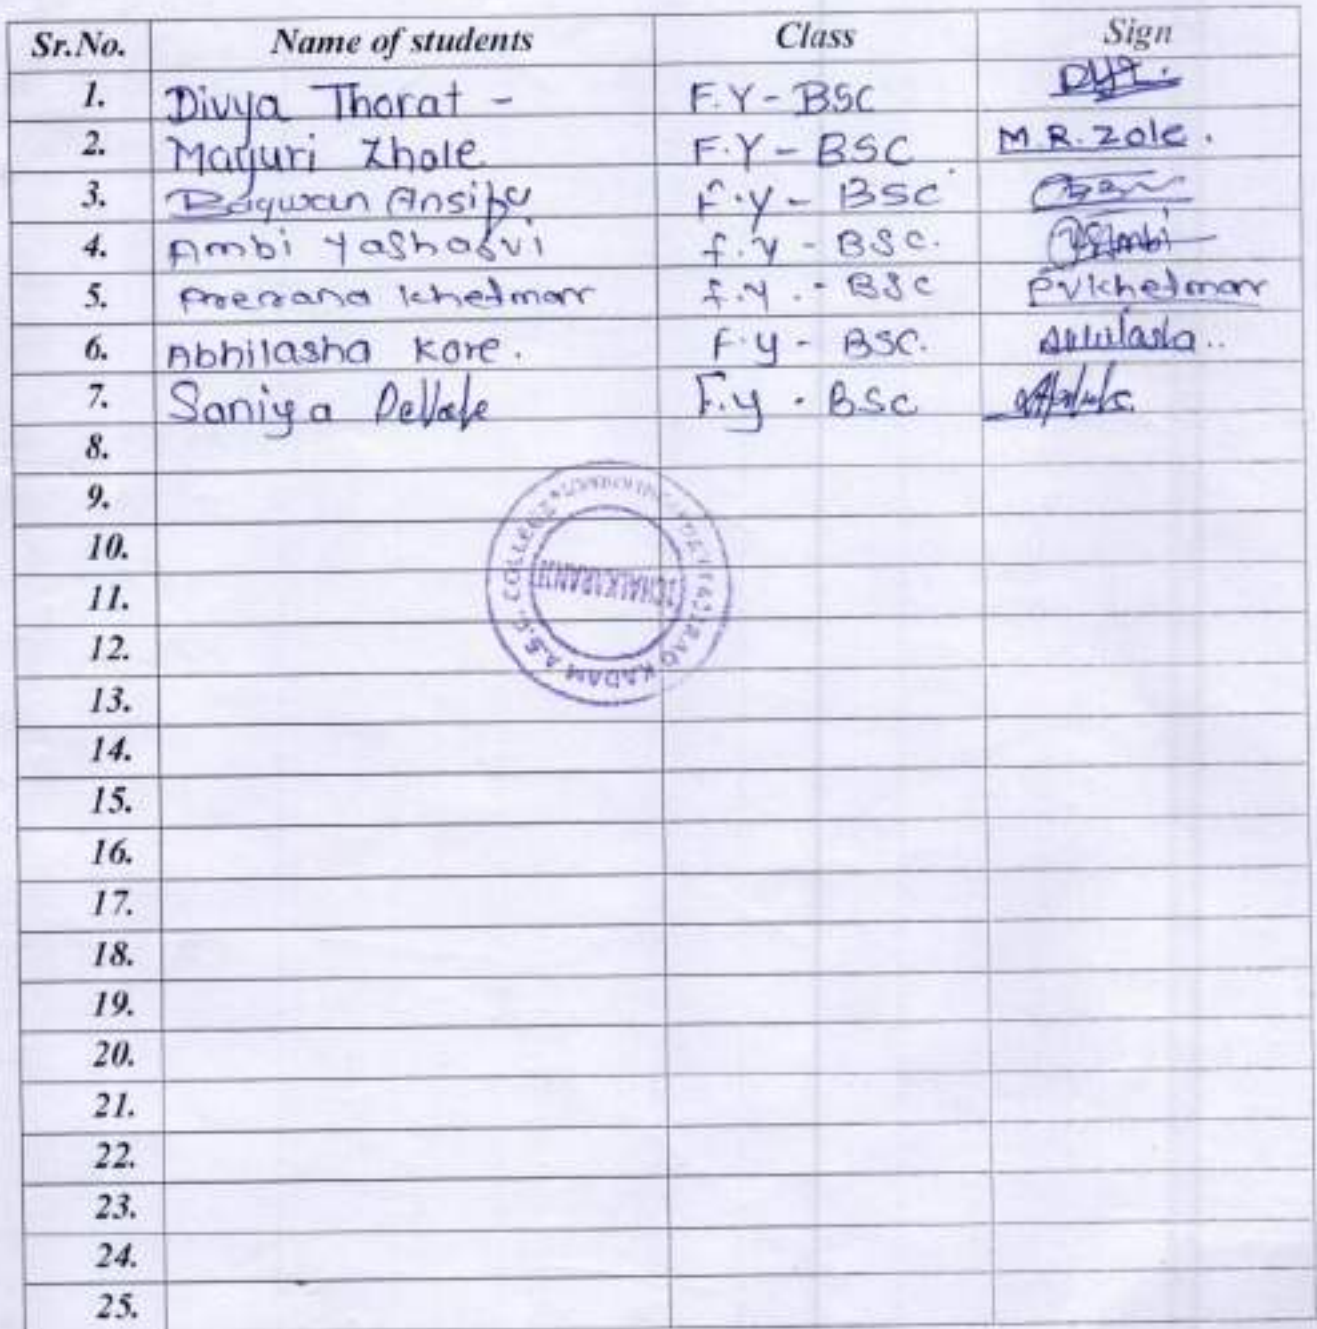 Sr.No. Name of students Class Sign
1. Divya Thorat - F.Y - BSC
2. Mayuri Zhole F.Y - BSC M.R. Zole.
3. Bagwan Ansifa F.Y - BSC
4. Ambi Yashasvi f.y - BSC.
5. Prerana Khetmar f.y. - BSC PVKhetmar
6. Abhilasha Kore. F.y - BSC. Abhilasha..
7. Saniya F.y - BSC
8.
9.
10.
11.
12.
13.
14.
15.
16.
17.
18.
19.
20.
21.
22.
23.
24.
25.
KADAM A.S.C. COLLEGE
ICHALKARANJI